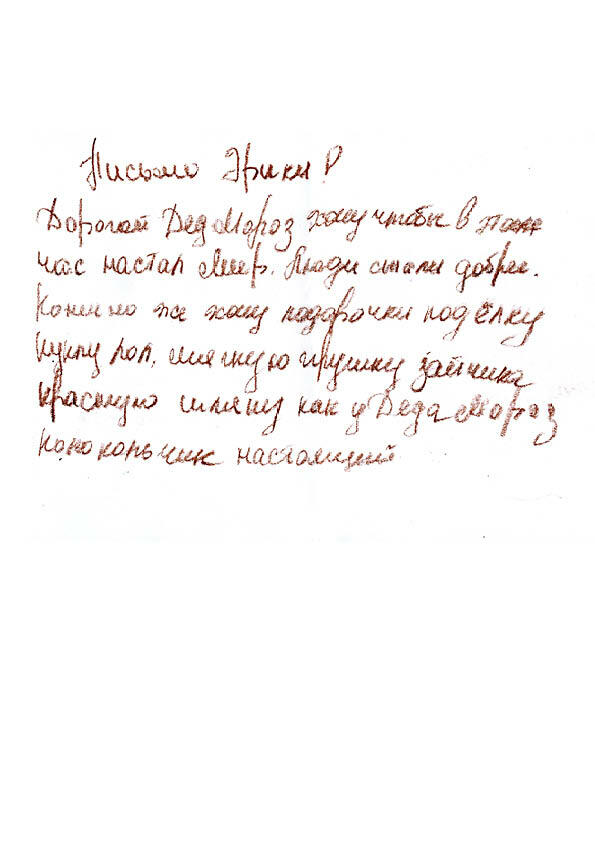 Письмо Эрики Р
Дорогой Дед Мороз хочу чтобы в этот
час настал Мир. Люди стали добрее.
Конечно же хочу подарочки под ёлку
куклу лол, мягкую игрушку зайчика
красную шляпу как у Деда Мороз
колокольчик настоящий